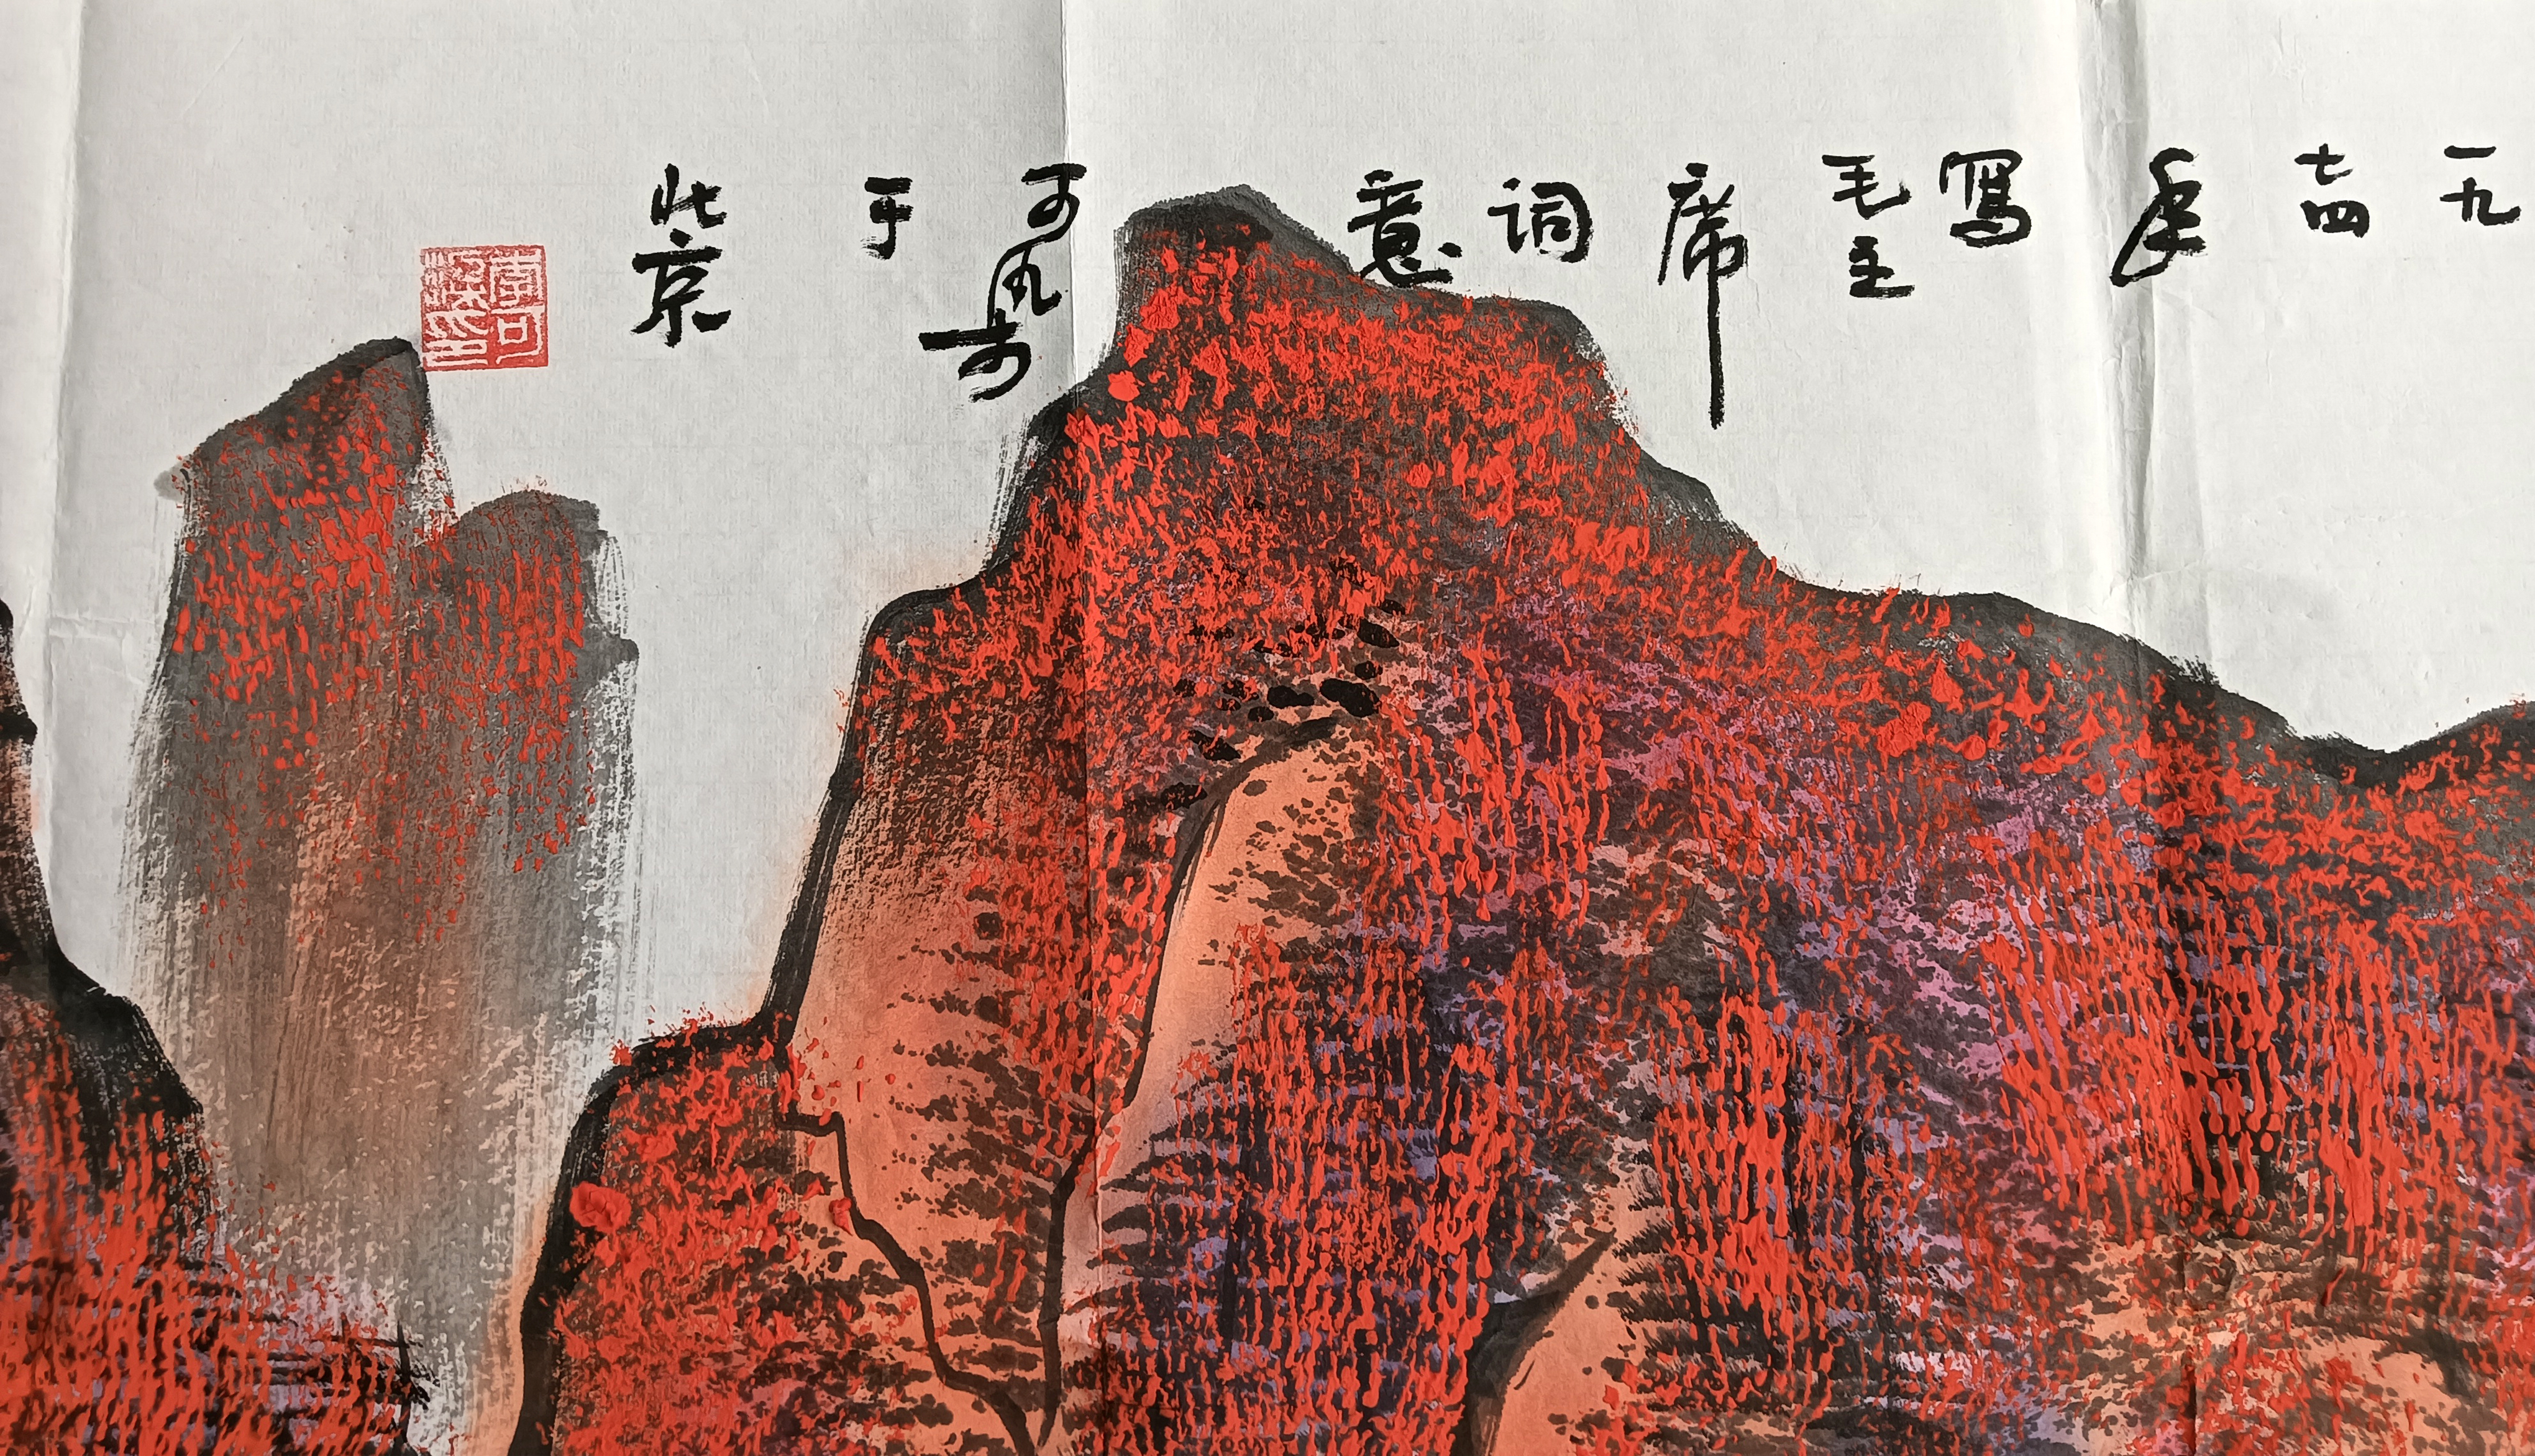 一九
七四
年
寫
毛主
席
词
意
可染
于
北京